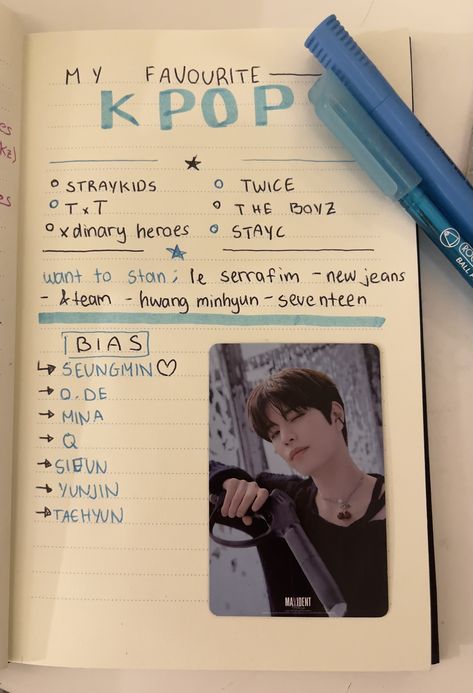 MY FAVOURITE
KPOP
STRAYKIDS
TXT
xdinary heroes
TWICE
THE BOYZ
STAYC
want to stan; le serrafim - new jeans
- &team - hwang minhyun - seventeen
BIAS
SEUNGMIN♡
O.DE
MINA
Q
SIEUN
YUNJIN
TAEHYUN
MAXIDENT
BALL